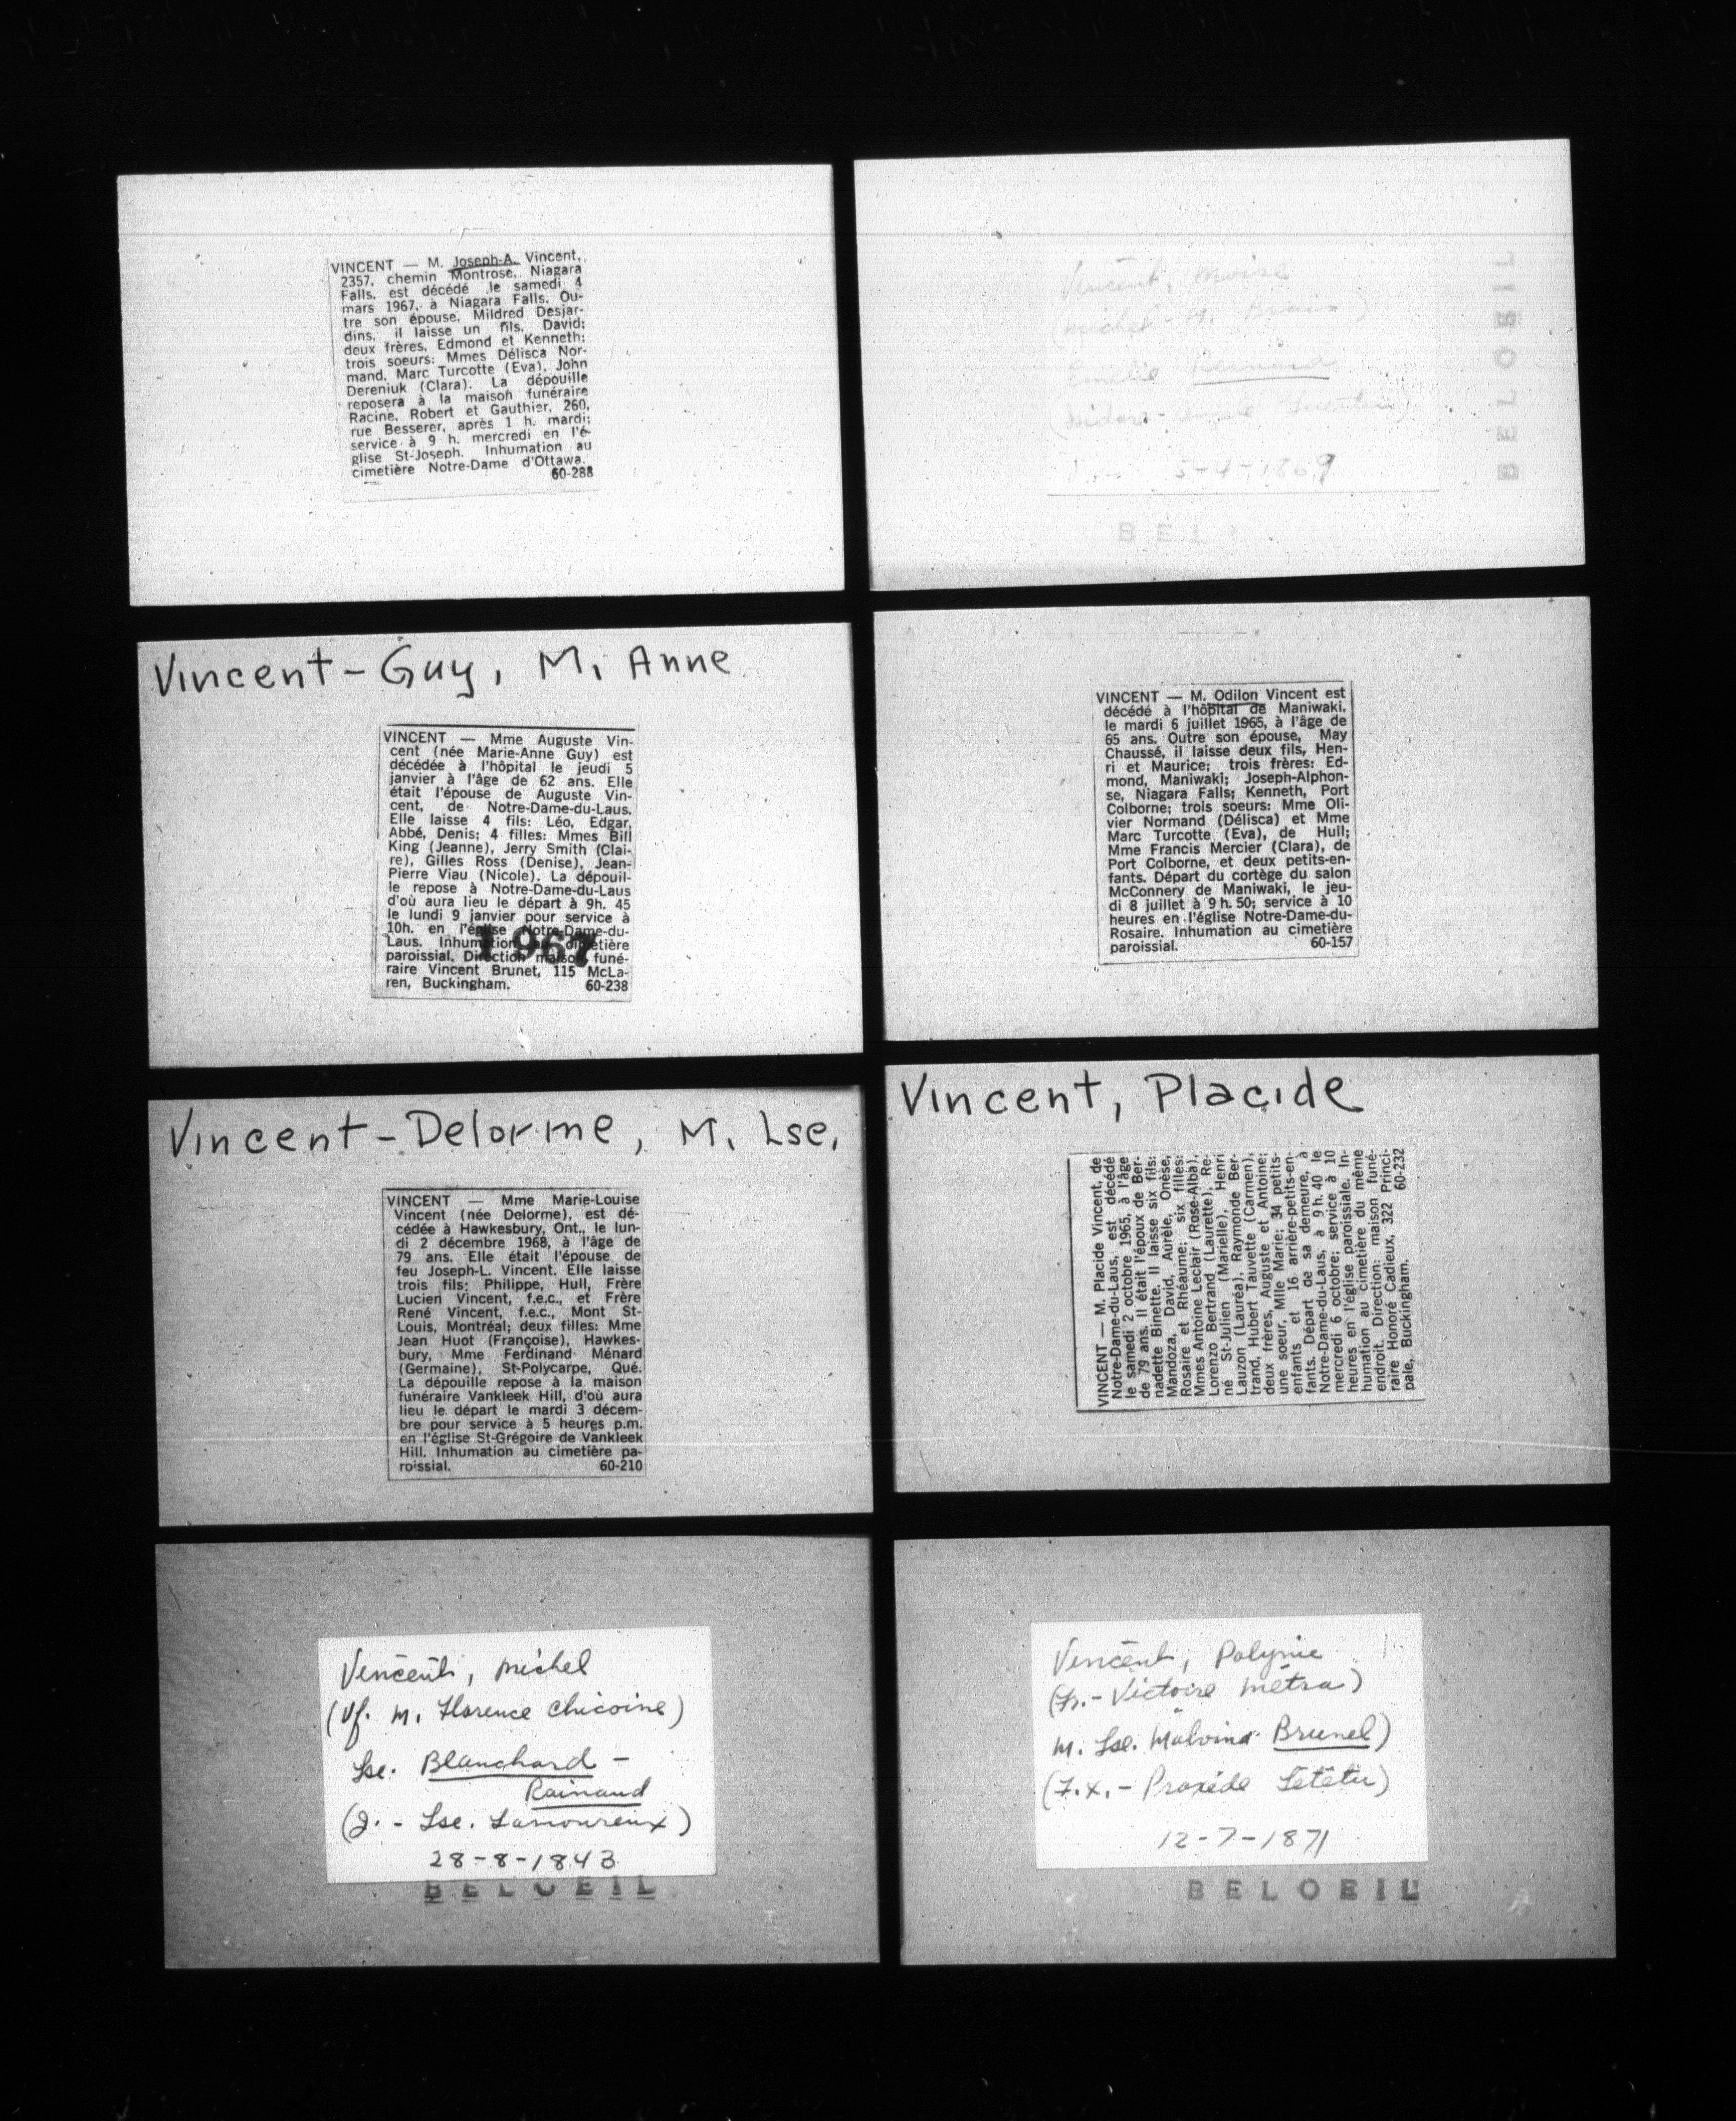 VINCENT — M. Joseph-A. Vincent,
2357, chemin Montrose, Niagara
Falls, est décédé le samedi 4
mars 1967, à Niagara Falls. Ou-
tre son épouse, Mildred Desjar-
dins, il laisse un fils, David;
deux frères, Edmond et Kenneth;
trois soeurs: Mmes Délisca Nor-
mand, Marc Turcotte (Eva), John
Dereniuk (Clara). La dépouille
reposera à la maison funéraire
Racine, Robert et Gauthier, 260,
rue Besserer, après 1 h. mardi;
service à 9 h. mercredi en l'é-
glise St-Joseph. Inhumation au
cimetière Notre-Dame d'Ottawa.
60-288
Vincent-Guy, M. Anne
VINCENT — Mme Auguste Vin-
cent (née Marie-Anne Guy) est
décédée à l'hôpital le jeudi 5
janvier à l'âge de 62 ans. Elle
était l'épouse de Auguste Vin-
cent, de Notre-Dame-du-Laus.
Elle laisse 4 fils: Léo, Edgar,
Abbé, Denis; 4 filles: Mmes Bill
King (Jeanne), Jerry Smith (Clai-
re), Gilles Ross (Denise), Jean-
Pierre Viau (Nicole). La dépouil-
le repose à Notre-Dame-du-Laus
d'où aura lieu le départ à 9h. 45
le lundi 9 janvier pour service à
10h. en l'église Notre-Dame-du-
Laus. Inhumation au cimetière
paroissial. Direction maison funé-
raire Vincent Brunet, 115 McLa-
ren, Buckingham. 60-238
1967
Vincent-Delorme, M. Lse.
VINCENT — Mme Marie-Louise
Vincent (née Delorme), est dé-
cédée à Hawkesbury, Ont., le lun-
di 2 décembre 1968, à l'âge de
79 ans. Elle était l'épouse de
feu Joseph-L. Vincent. Elle laisse
trois fils: Philippe, Hull, Frère
Lucien Vincent, f.e.c., et Frère
René Vincent, f.e.c., Mont St-
Louis, Montréal; deux filles: Mme
Jean Huot (Françoise), Hawkes-
bury, Mme Ferdinand Ménard
(Germaine), St-Polycarpe, Qué.
La dépouille repose à la maison
funéraire Vankleek Hill, d'où aura
lieu le départ le mardi 3 décem-
bre pour service à 5 heures p.m.
en l'église St-Grégoire de Vankleek
Hill. Inhumation au cimetière pa-
roissial. 60-210
Vincent, Michel
(Vf. M. Florence Chicoine)
Lse. Blanchard -
Rainaud
(J. - Lse. Lamoureux)
28-8-1843
BELOEIL
Vincent, Moise
(Michel - M.
Bernard
5-4-1869
BEL
VINCENT — M. Odilon Vincent est
décédé à l'hôpital de Maniwaki,
le mardi 6 juillet 1965, à l'âge de
65 ans. Outre son épouse, May
Chaussé, il laisse deux fils, Hen-
ri et Maurice; trois frères: Ed-
mond, Maniwaki; Joseph-Alphon-
se, Niagara Falls; Kenneth, Port
Colborne; trois soeurs: Mme Oli-
vier Normand (Délisca) et Mme
Marc Turcotte (Eva), de Hull;
Mme Francis Mercier (Clara), de
Port Colborne, et deux petits-en-
fants. Départ du cortège du salon
McConnery de Maniwaki, le jeu-
di 8 juillet à 9 h. 50; service à 10
heures en l'église Notre-Dame-du-
Rosaire. Inhumation au cimetière
paroissial. 60-157
Vincent, Placide
VINCENT — M. Placide Vincent, de
Notre-Dame-du-Laus, est décédé
le samedi 2 octobre 1965, à l'âge
de 79 ans. Il était l'époux de Ber-
nadette Binette. Il laisse six fils:
Mandoza, David, Aurèle, Onèse,
Rosaire et Rhéaume; six filles:
Mmes Antoine Leclair (Rose-Alba),
Lorenzo Bertrand (Laurette), Re-
né St-Julien (Marielle), Henri
Lauzon (Lauréa), Raymonde Ber-
trand, Hubert Tauvette (Carmen),
deux frères, Auguste et Antoine;
une soeur, Mlle Marie; 34 petits-
enfants et 16 arrière-petits-en-
fants. Départ de sa demeure, à
Notre-Dame-du-Laus, à 9 h. 40 le
mercredi 6 octobre; service à 10
heures en l'église paroissiale. In-
humation au cimetière du même
endroit. Direction: maison funé-
raire Honoré Cadieux, 322 Princi-
pale, Buckingham. 60-232
Vincent, Polynie
(Fr. - Victoire Métra)
M. Lse. Malvina Brunel)
(F.X. - Proxède Létètu)
12-7-1871
BELOEIL